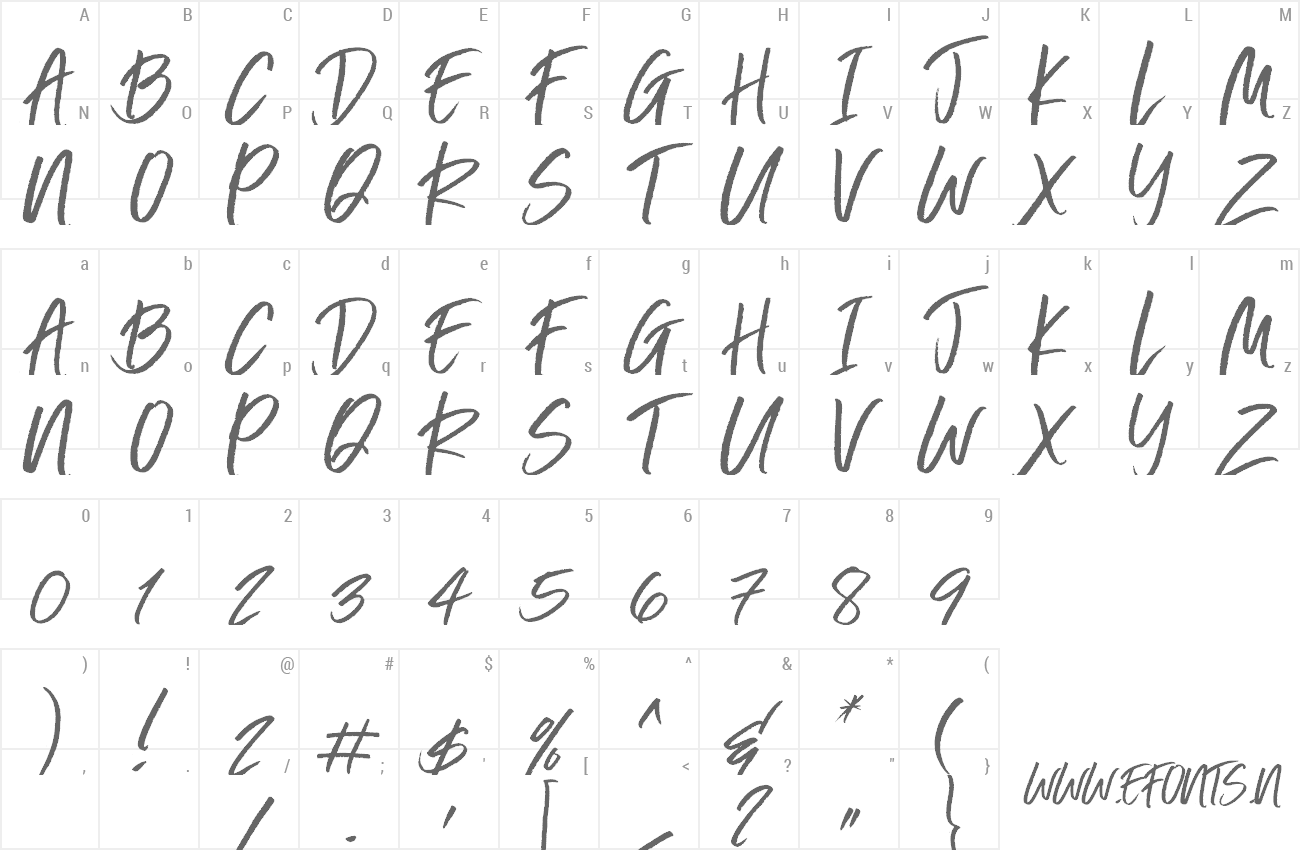 A B C D E F G H I J K L M
A B C D E F G H I J K L M
N O P Q R S T U V W X Y Z
N O P Q R S T U V W X Y Z
a b c d e f g h i j k l m
A B C D E F G H I J K L M
n o p q r s t u v w x y z
N O P Q R S T U V W X Y Z
0 1 2 3 4 5 6 7 8 9
0 1 2 3 4 5 6 7 8 9
) ! @ # $ % ^ & * (
) ! 2 # $ % ^ & * (
, . / ; ' [ < ? " }
/ . ' [ ? " {
WWW.EFONTS.N